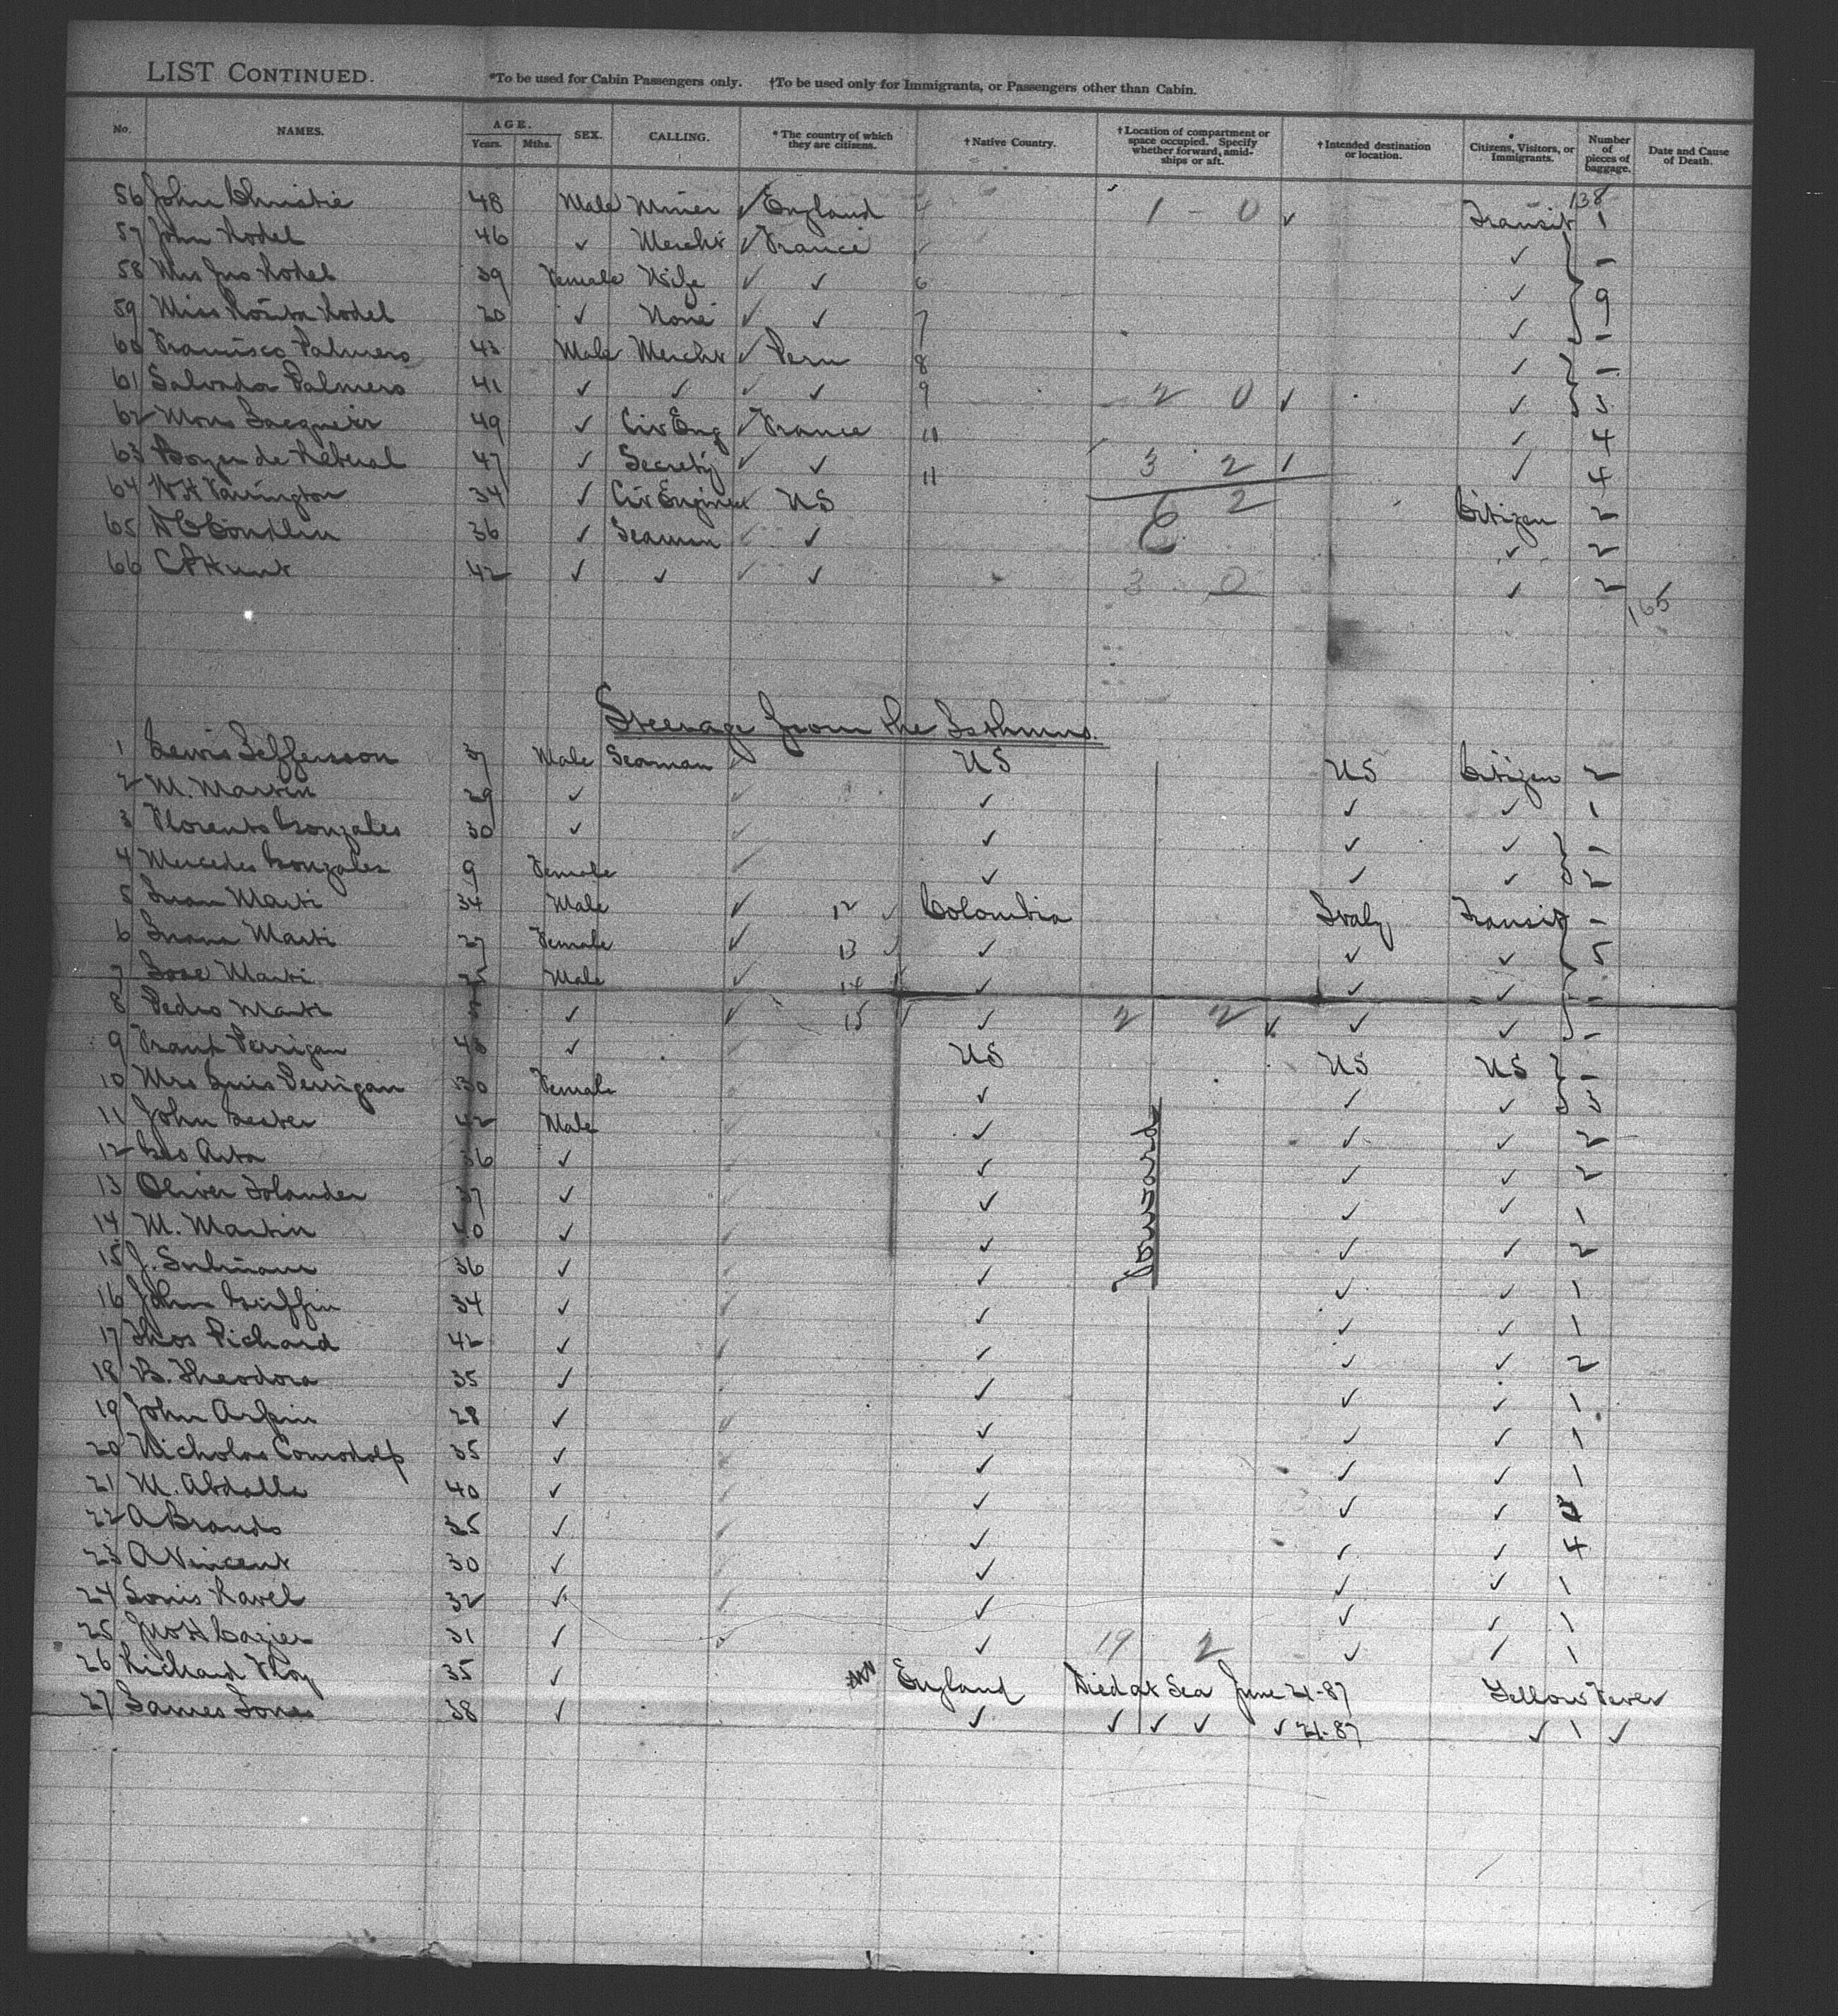 LIST CONTINUED. *To be used for Cabin Passengers only. †To be used only for Immigrants, or Passengers other than Cabin.
No. NAMES. AGE. Years. Mths. SEX. CALLING. * The country of which they are citizens. † Native Country. † Location of compartment or space occupied. Specify whether forward, amidships or aft. † Intended destination or location. Citizens, Visitors, or Immigrants. Number of pieces of baggage. Date and Cause of Death.
138
56 John Christie 48 Male Miner ✓ England 1 - 0 ✓ Transit 1
57 John Rodel 46 ✓ Mercht ✓ France ✓ -
58 Mrs Jno Rodel 39 Female Wife ✓ ✓ 6 ✓ 9
59 Miss Rosita Rodel 20 ✓ None ✓ ✓ 7 ✓ -
60 Francisco Palmero 43 Male Mercht ✓ Peru 8 ✓ -
61 Salvador Palmero 41 ✓ ✓ ✓ ✓ 9 2 0 ✓ ✓ 3
62 Mons Jacquier 49 ✓ Civ Eng ✓ France 11 ✓ 4
63 Boyer de 47 ✓ Secrety ✓ ✓ 11 3 2 1 ✓ 4
64 W H Farrington 34 ✓ Civ Engineer ✓ US 6 2 Citizen 2
65 36 ✓ Seaman ✓ ✓ ✓ 2
66 C P Hunt 42 ✓ ✓ ✓ ✓ 3 0 ✓ 2
165
Steerage from the Isthmus.
1 Lewis Jeffersson 37 Male Seaman ✓ US US Citizen 2
2 M. Martin 29 ✓ ✓ ✓ ✓ ✓ 1
3 Florento Gonzales 30 ✓ ✓ ✓ ✓ ✓ -
4 Mercedes Gonzales 9 Female ✓ ✓ ✓ ✓ 2
5 Juan Marti 34 Male ✓ 12 ✓ Colombia Italy Transit -
6 Juana Marti 27 Female ✓ 13 ✓ ✓ ✓ ✓ 5
7 Jose Marti 25 Male ✓ 14 ✓ ✓ ✓ ✓ -
8 Pedro Marti 5 ✓ ✓ 15 ✓ ✓ 2 2 ✓ ✓ ✓ -
9 Frank Perrigan 43 ✓ ✓ US US US -
10 Mrs Luis Perrigan 30 Female ✓ ✓ ✓ ✓ 3
11 John Lester 42 Male ✓ ✓ ✓ ✓ 2
12 Geo Arta 36 ✓ ✓ ✓ ✓ ✓ 2
13 Oliver Tolander 37 ✓ ✓ ✓ ✓ ✓ 1
Forward
14 M. Martin 40 ✓ ✓ ✓ ✓ ✓ 2
15 J. 36 ✓ ✓ ✓ ✓ ✓ 1
16 John Griffin 34 ✓ ✓ ✓ ✓ ✓ 1
17 Thos Pichard 42 ✓ ✓ ✓ ✓ ✓ 2
18 B. Theodora 35 ✓ ✓ ✓ ✓ 1
19 John Arpin 28 ✓ ✓ ✓ ✓ ✓ 1
20 Nicholas 35 ✓ ✓ ✓ ✓ ✓ 1
21 M. Abdalla 40 ✓ ✓ ✓ ✓
22 A Brands 35 ✓ ✓ ✓ ✓ ✓ 4
23 A Vincent 30 ✓ ✓ ✓ ✓ ✓ 1
24 Louis Ravel 32 ✓ ✓ ✓ ✓ ✓ 1
25 Jno H Cazier 31 ✓ ✓ ✓ 19 2 ✓ ✓ 1
26 Richard 35 ✓ England Died at Sea June 21-87 Yellow Fever
27 James Jones 38 ✓ ✓ ✓ ✓ ✓ ✓ 21-87 ✓ 1 ✓